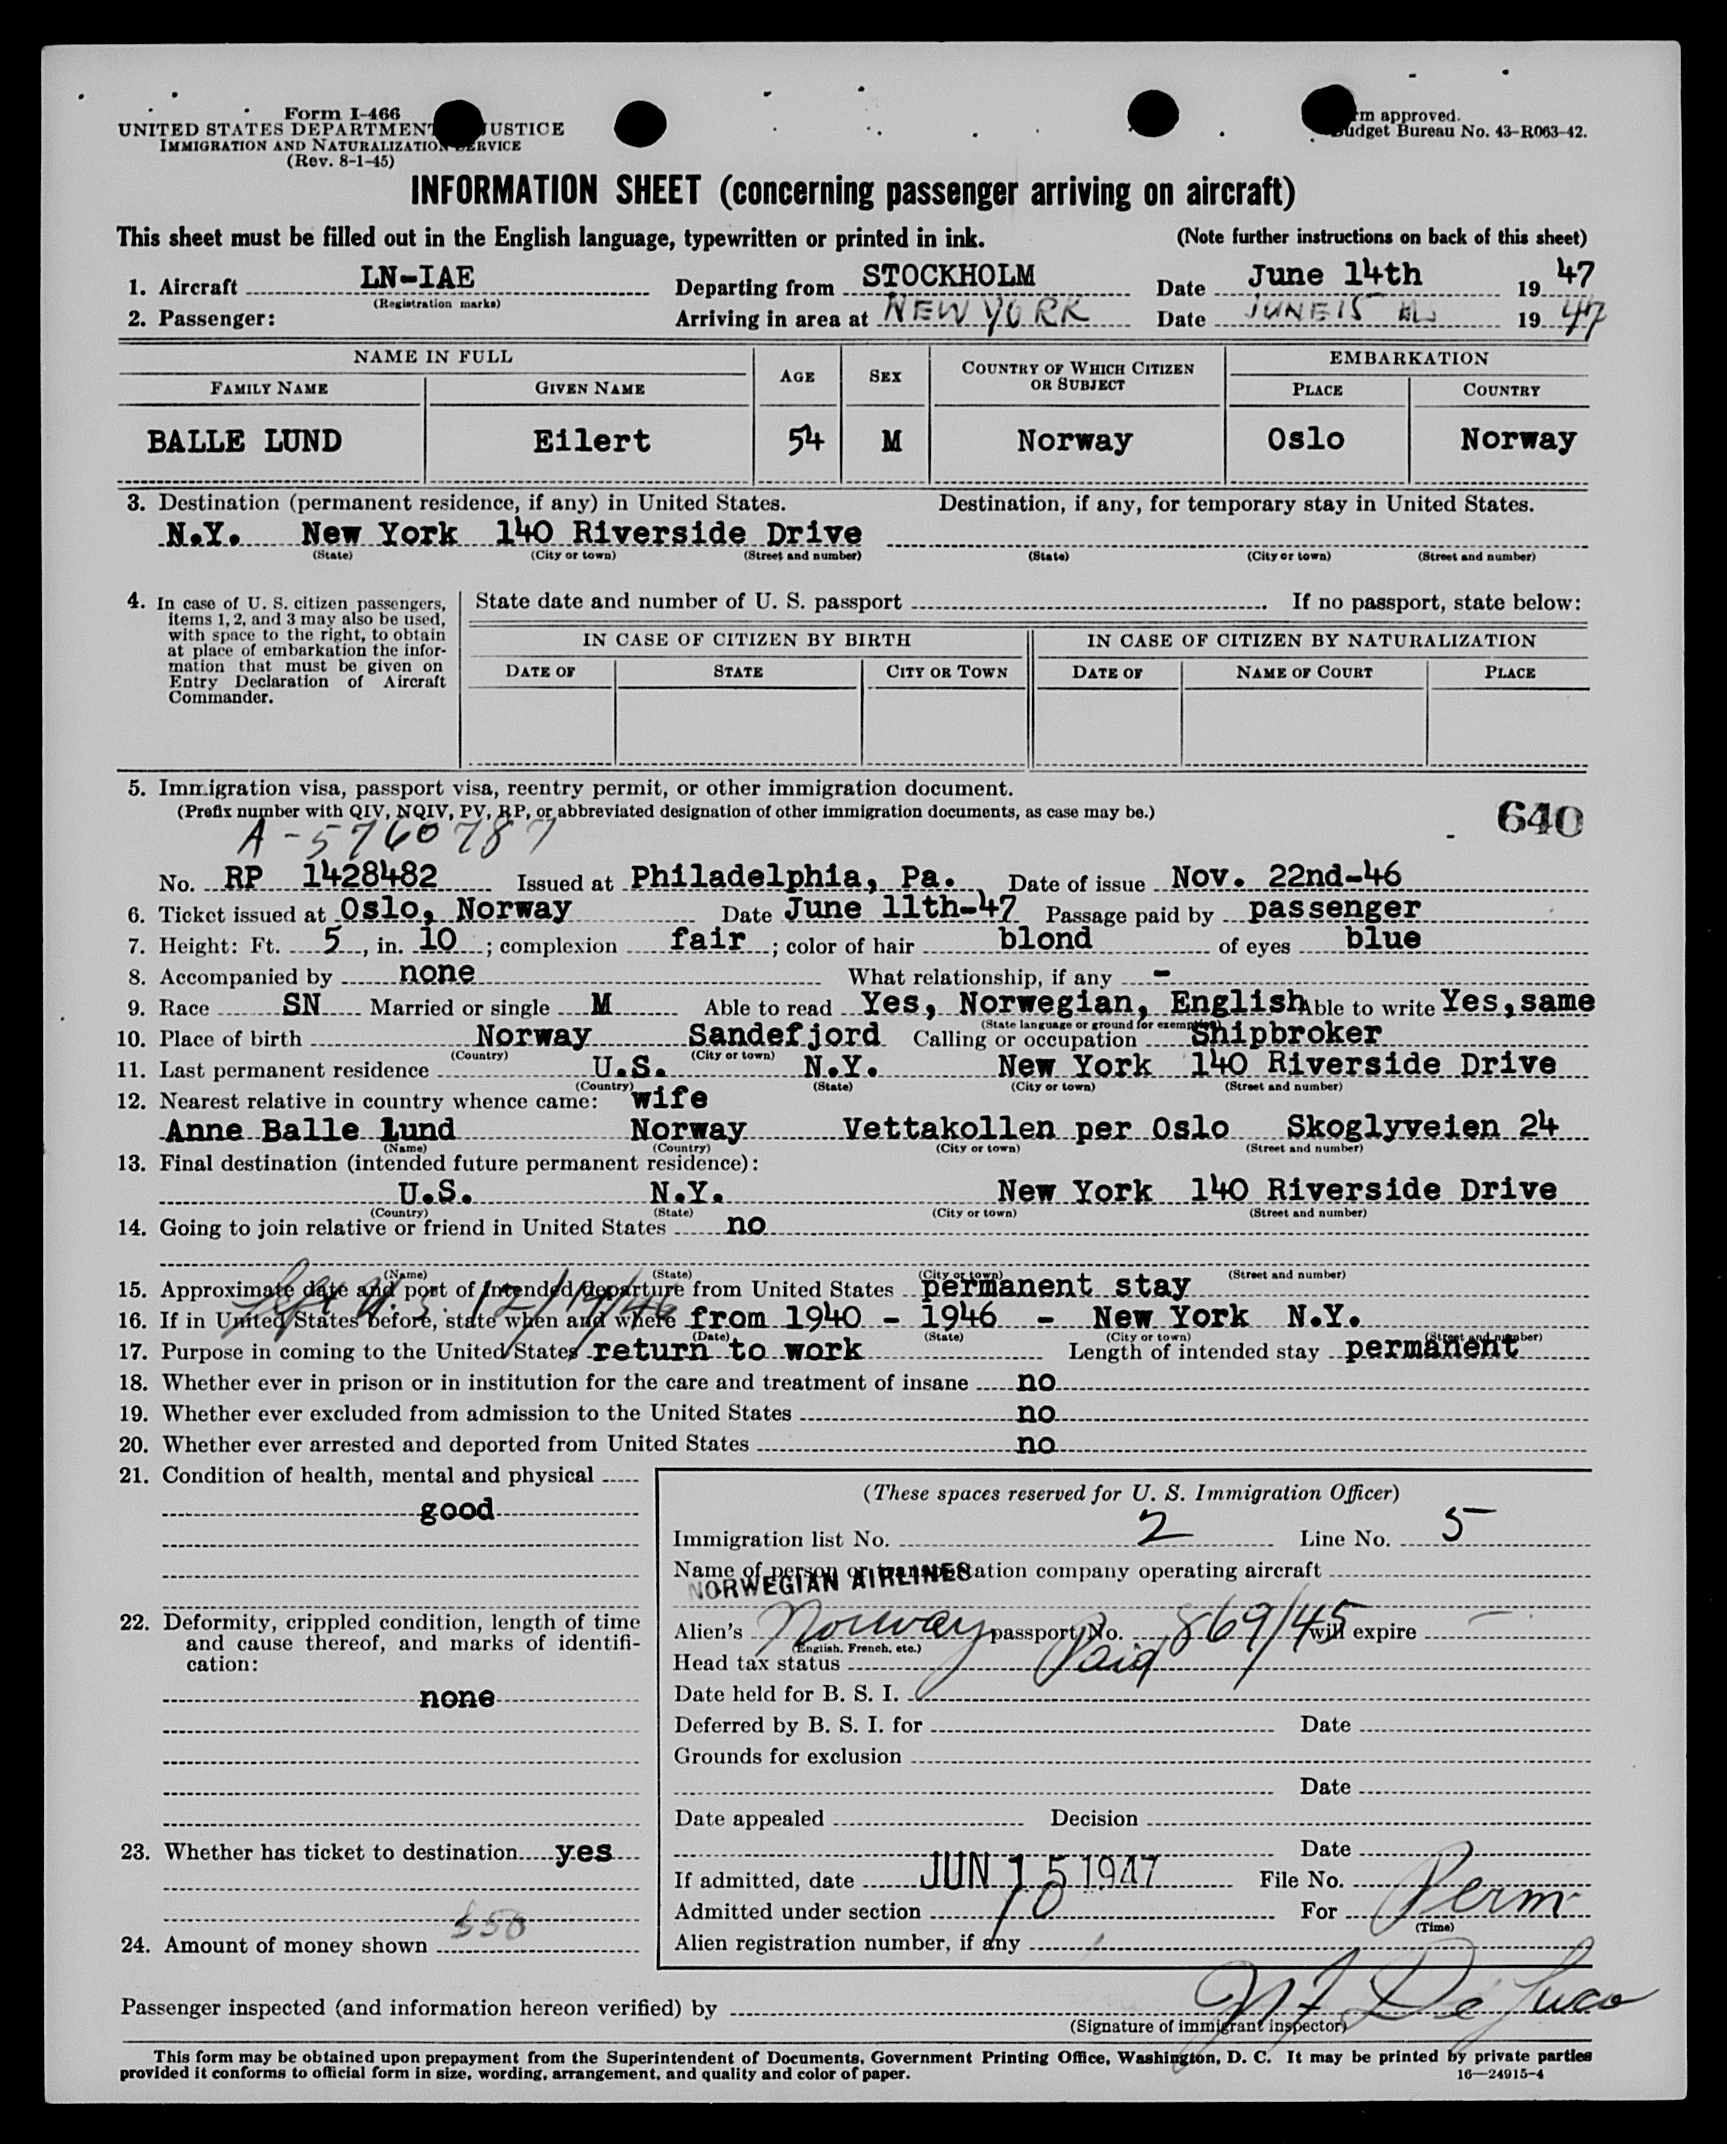 Form I-466
UNITED STATES DEPARTMENT JUSTICE
IMMIGRATION AND NATURALIZATION SERVICE
(Rev. 8-1-45)
rm approved.
Budget Bureau No. 43-R063-42.
INFORMATION SHEET (concerning passenger arriving on aircraft)
This sheet must be filled out in the English language, typewritten or printed in ink. (Note further instructions on back of this sheet)
1. Aircraft LN-IAE Departing from STOCKHOLM Date June 14th 19 47
(Registration marks)
2. Passenger: Arriving in area at NEW YORK Date JUNE 15 19 47
NAME IN FULL AGE SEX COUNTRY OF WHICH CITIZEN OR SUBJECT EMBARKATION
FAMILY NAME GIVEN NAME PLACE COUNTRY
BALLE LUND Eilert 54 M Norway Oslo Norway
3. Destination (permanent residence, if any) in United States. Destination, if any, for temporary stay in United States.
N.Y. New York 140 Riverside Drive
(State) (City or town) (Street and number) (State) (City or town) (Street and number)
4. In case of U. S. citizen passengers, items 1, 2, and 3 may also be used, with space to the right, to obtain at place of embarkation the information that must be given on Entry Declaration of Aircraft Commander.
State date and number of U. S. passport . If no passport, state below:
IN CASE OF CITIZEN BY BIRTH IN CASE OF CITIZEN BY NATURALIZATION
DATE OF STATE CITY OR TOWN DATE OF NAME OF COURT PLACE
5. Immigration visa, passport visa, reentry permit, or other immigration document.
(Prefix number with QIV, NQIV, PV, RP, or abbreviated designation of other immigration documents, as case may be.)
640
A-5760787
No. RP 1428482 Issued at Philadelphia, Pa. Date of issue Nov. 22nd-46
6. Ticket issued at Oslo, Norway Date June 11th-47 Passage paid by passenger
7. Height: Ft. 5, in. 10; complexion fair; color of hair blond of eyes blue
8. Accompanied by none What relationship, if any -
9. Race SN Married or single M Able to read Yes, Norwegian, English Able to write Yes, same
(State language or ground for exemption)
10. Place of birth Norway Sandefjord Calling or occupation Shipbroker
(Country) (City or town)
11. Last permanent residence U.S. N.Y. New York 140 Riverside Drive
(Country) (State) (City or town) (Street and number)
12. Nearest relative in country whence came: wife
Anne Balle lund Norway Vettakollen per Oslo Skoglyveien 24
(Name) (Country) (City or town) (Street and number)
13. Final destination (intended future permanent residence):
U.S. N.Y. New York 140 Riverside Drive
(Country) (State) (City or town) (Street and number)
14. Going to join relative or friend in United States no
(Name) (State) (City or town) (Street and number)
15. Approximate date and port of intended departure from United States permanent stay
Left U.S. 12/19/46
16. If in United States before, state when and where from 1940 - 1946 - New York N.Y.
(Date) (State) (City or town) (Street and number)
17. Purpose in coming to the United States return to work Length of intended stay permanent
18. Whether ever in prison or in institution for the care and treatment of insane no
19. Whether ever excluded from admission to the United States no
20. Whether ever arrested and deported from United States no
21. Condition of health, mental and physical
good
22. Deformity, crippled condition, length of time and cause thereof, and marks of identification:
none
23. Whether has ticket to destination yes
24. Amount of money shown 550
(These spaces reserved for U. S. Immigration Officer)
Immigration list No. 2 Line No. 5
Name of person or transportation company operating aircraft
NORWEGIAN AIRLINES
Alien's Norway passport No. 869/45 will expire —
(English, French, etc.)
Head tax status Paid
Date held for B. S. I.
Deferred by B. S. I. for Date
Grounds for exclusion
Date
Date appealed Decision
Date
If admitted, date JUN 15 1947 File No.
Admitted under section 10 For Perm
(Time)
Alien registration number, if any
Passenger inspected (and information hereon verified) by De Luca
(Signature of immigrant inspector)
This form may be obtained upon prepayment from the Superintendent of Documents, Government Printing Office, Washington, D. C. It may be printed by private parties
provided it conforms to official form in size, wording, arrangement, and quality and color of paper. 16—24915-4